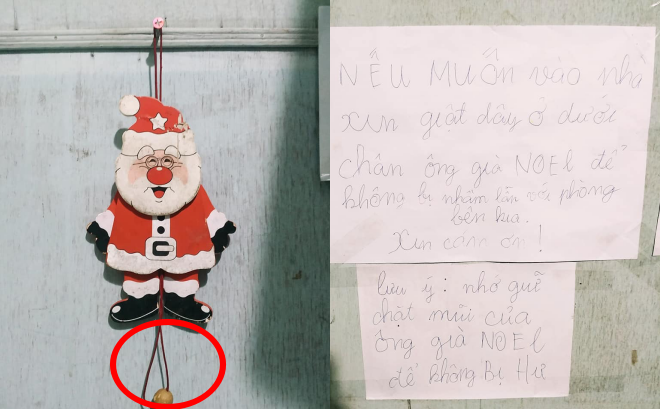 NẾU MUỐN vào nhà
xin giật dây ở dưới
chân ông già NOEl để
không bị nhầm lẫn với phòng
bên kia.
Xin cảm ơn!
lưu ý: nhớ giữ
chặt mũi của
ông già NOEl
để không Bị Hư